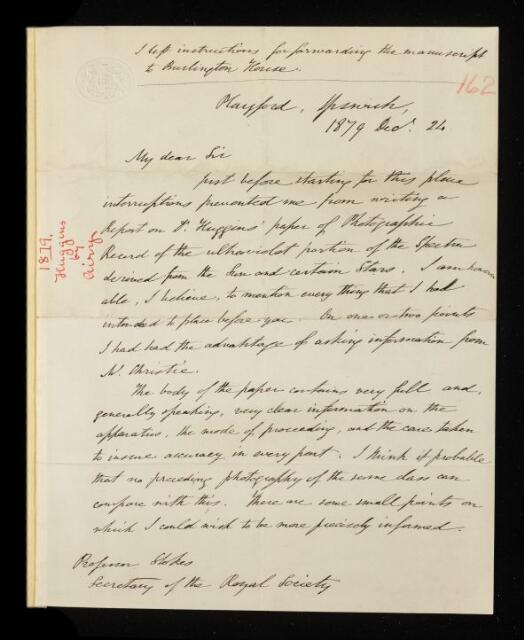 I left instructions for forwarding the manuscript
to Burlington House.
162
Playford, Ipswich,
1879 Decr. 24
My dear Sir
just before starting for this place
interruptions prevented me from writing a
Report on Dr. Huggins' paper of Photographic
Record of the ultraviolet portion of the Spectra
derived from the Sun and certain Stars. I am however
able, I believe, to mention every thing that I had
intended to place before you. On one or two points
I had had the advantage of asking information from
Mr. Christie.
The body of the paper contains very full and,
generally speaking, very clear information on the
apparatus, the mode of proceeding, and the care taken
to insure accuracy in every part. I think it probable
that no preceding photography of the same class can
compare with this. There are some small points on
which I could wish to be more precisely informed.
Professor Stokes
Secretary of the Royal Society
1879.
Huggins
by
Airy